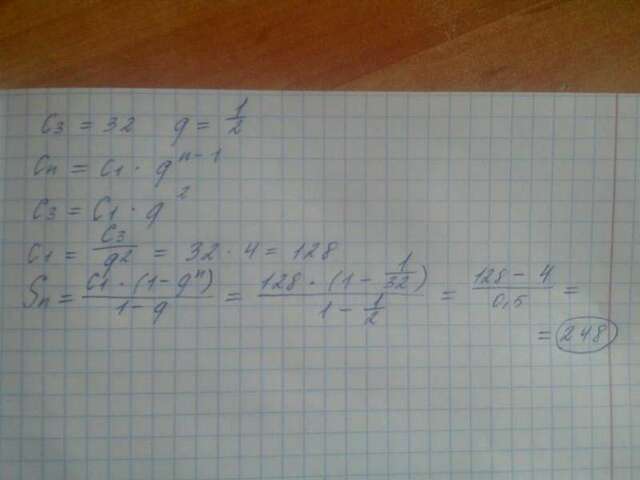 c₃ = 32 q = 1/2
cₙ = c₁ · qⁿ⁻¹
c₃ = c₁ · q²
c₁ = c₃/q² = 32 · 4 = 128
Sₙ = c₁ · (1 - qⁿ)/1 - q = 128 · (1 - 1/32)/1 - 1/2 = 128 - 4/0,5 =
= 248